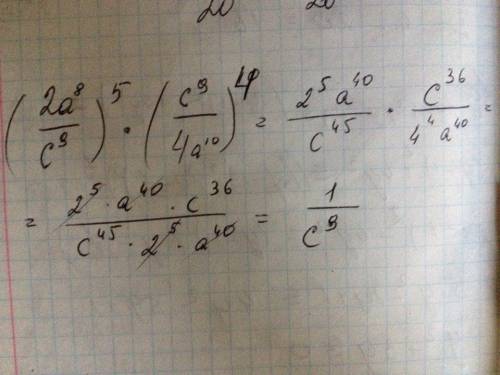 20 20
(2a⁸/c⁹)⁵ · (c⁹/4a¹⁰)⁴ = 2⁵a⁴⁰/c⁴⁵ · c³⁶/4⁴a⁴⁰ =
= 2⁵·a⁴⁰·c³⁶/c⁴⁵·2⁵·a⁴⁰ = 1/c⁹